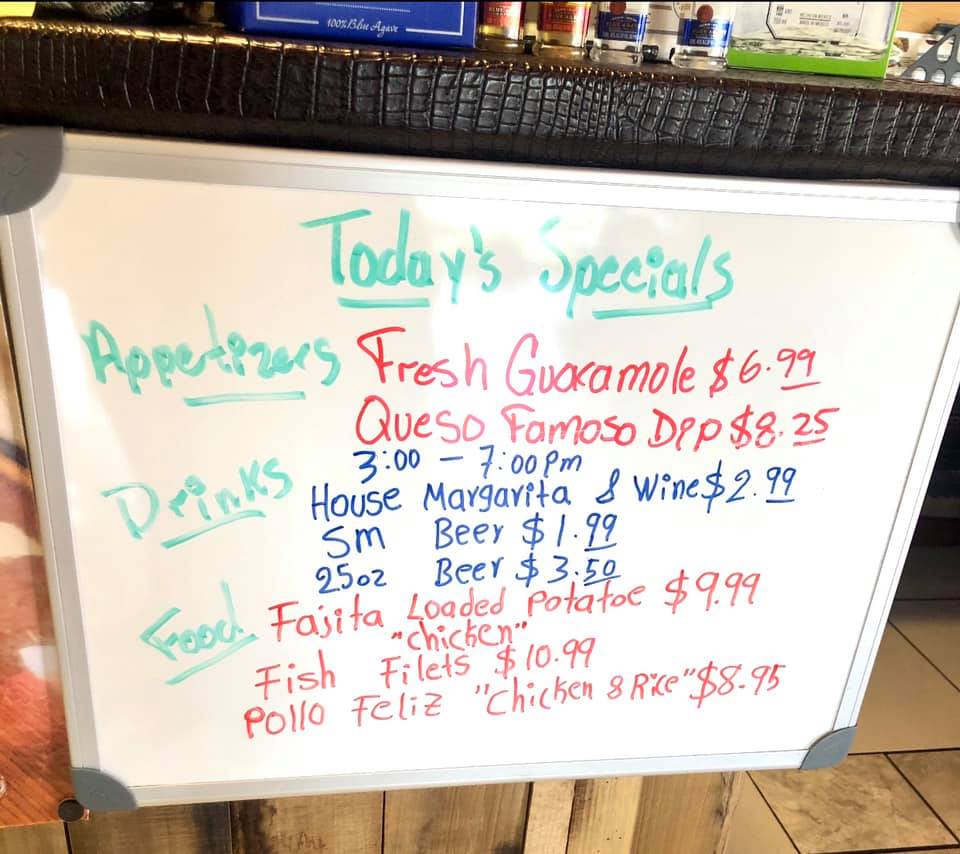 100% Blue Agave
Today's Specials
Appetizers Fresh Guacamole $6.99
Queso Famoso Dip $8.25
Drinks 3:00 - 7:00 Pm
House Margarita & Wine $2.99
Sm Beer $1.99
25oz Beer $3.50
Food Fajita Loaded Potatoe $9.99
"chicken"
Fish Filets $10.99
Pollo Feliz "Chicken & Rice" $8.95